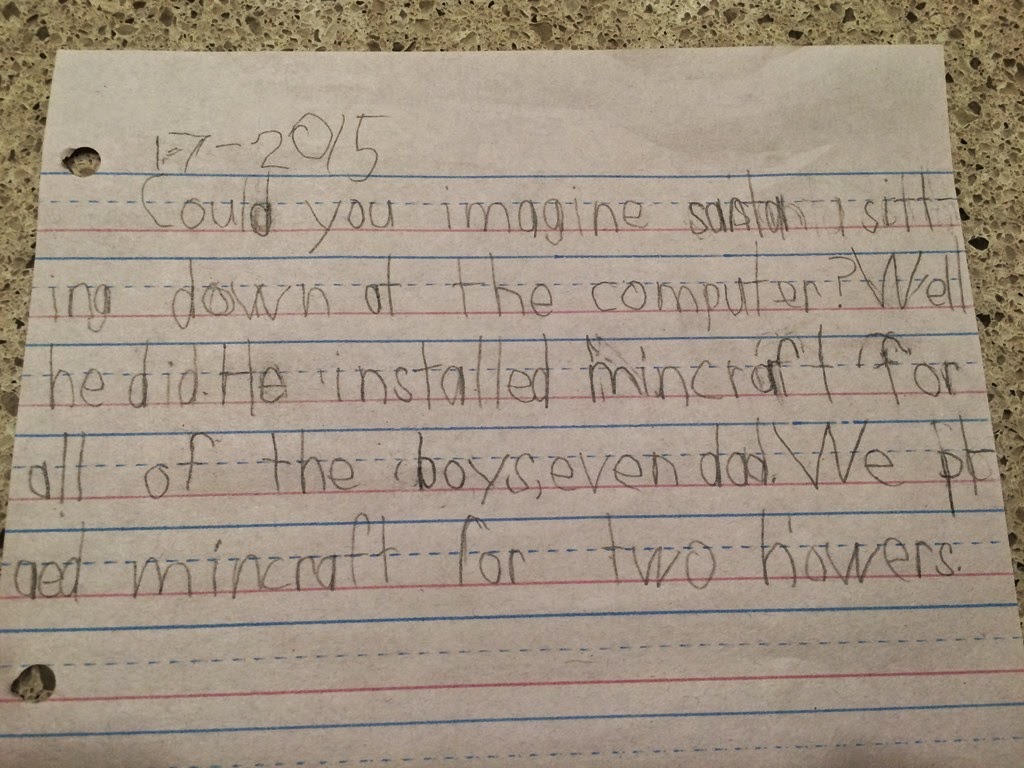 1-7-2015
Could you imagine santa sitt-
ing down at the computer? Well
he did. He installed mincraft for
all of the boys, even dad. We pl
aed mincraft for two howers.